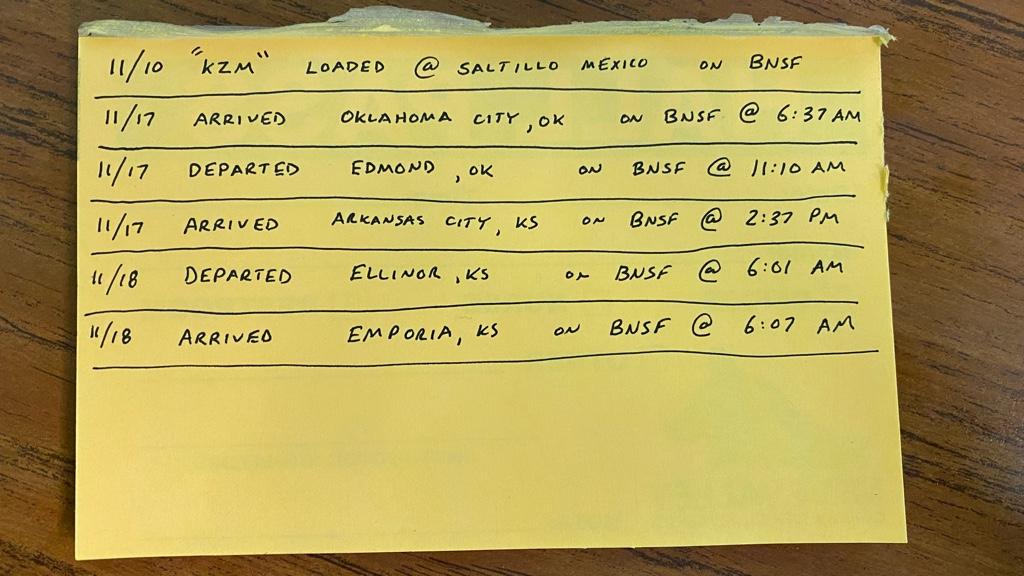 11/10 "KZM" LOADED @ SALTILLO MEXICO ON BNSF
11/17 ARRIVED OKLAHOMA CITY, OK ON BNSF @ 6:37 AM
11/17 DEPARTED EDMOND, OK ON BNSF @ 11:10 AM
11/17 ARRIVED ARKANSAS CITY, KS ON BNSF @ 2:37 PM
11/18 DEPARTED ELLINOR, KS ON BNSF @ 6:01 AM
11/18 ARRIVED EMPORIA, KS ON BNSF @ 6:07 AM